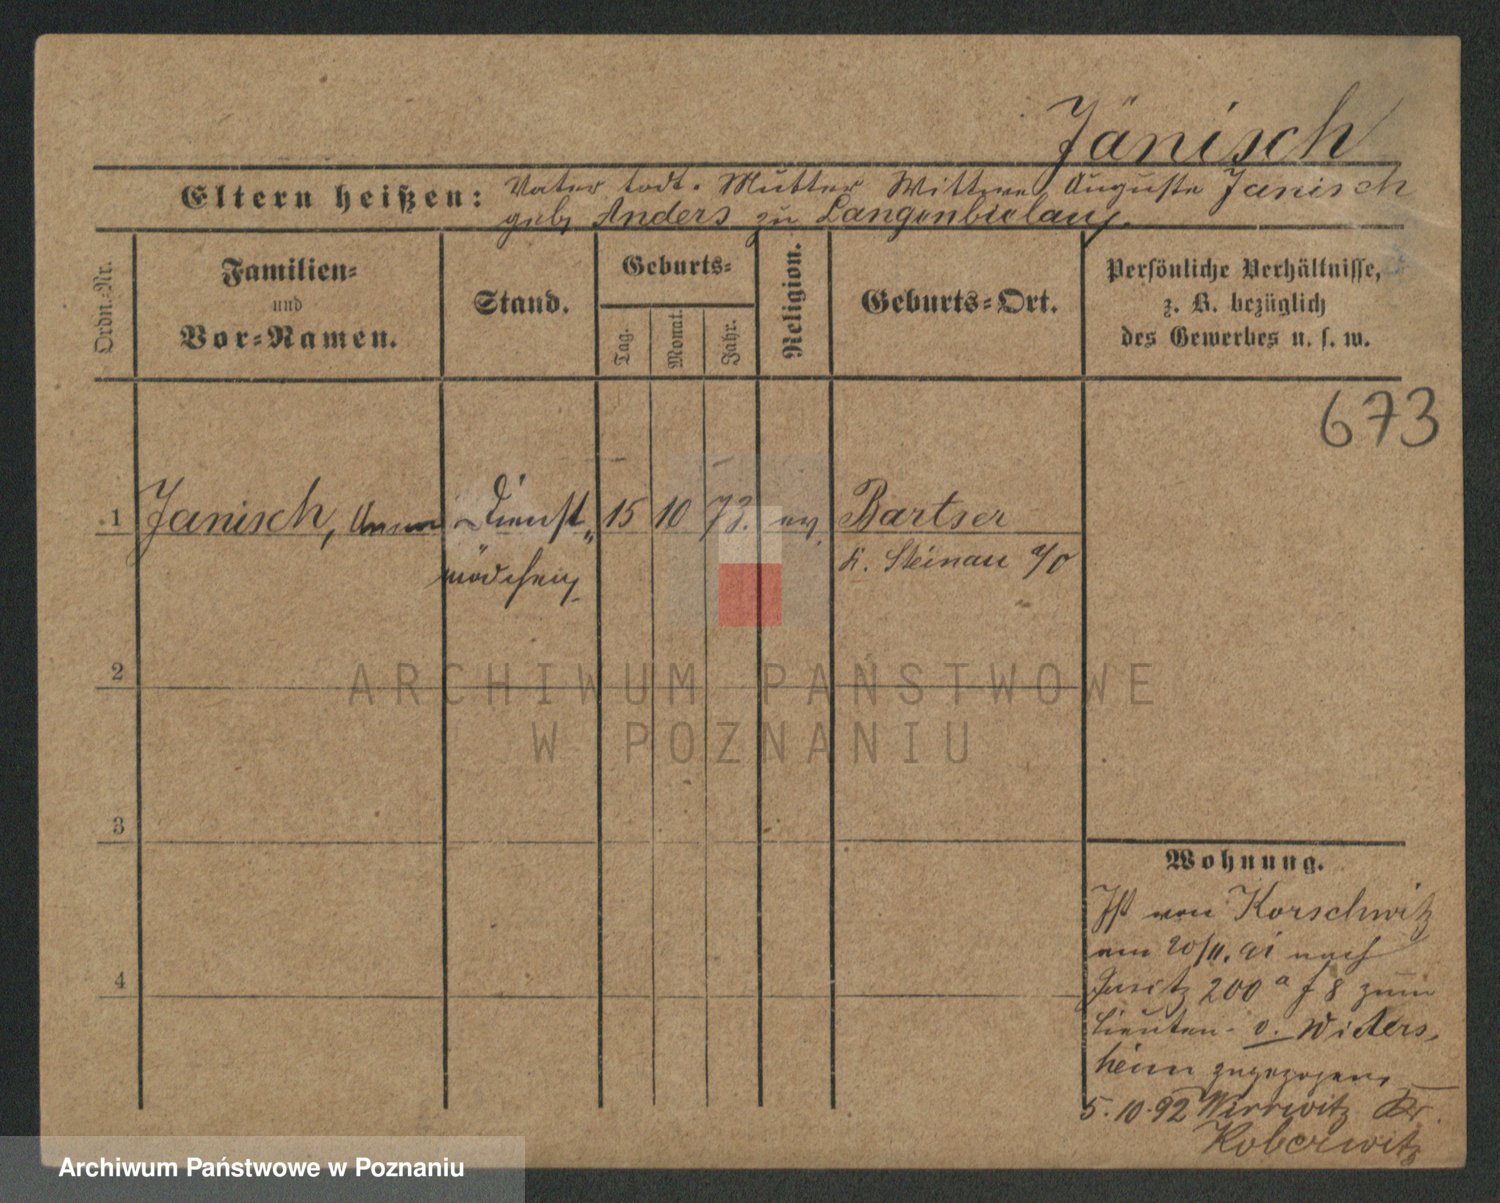 Jänisch
Eltern heißen: Vater todt. Mutter Wittwe Auguste Janisch
geb. Anders zu Langenbielau.
Ordn.-Nr.
Familien-
und
Vor-Namen.
Stand.
Geburts-
Tag.
Monat.
Jahr.
Religion.
Geburts-Ort.
Persönliche Verhältnisse,
z. B. bezüglich
des Gewerbes u. s. w.
673
1 Janisch, Anna Dienst 15 10 73. ev. Bartser
mädchen K. Steinau a/O
2
ARCHIWUM PAŃSTWOWE
W POZNANIU
3
4
Wohnung.
Ist von Korschwitz
am 20/11. 91 nach
200 a zum
Lieuten. v. Wieters
heim zugezogen,
5.10.92 Wirrwitz Kr.
Koberwitz
Archiwum Państwowe w Poznaniu